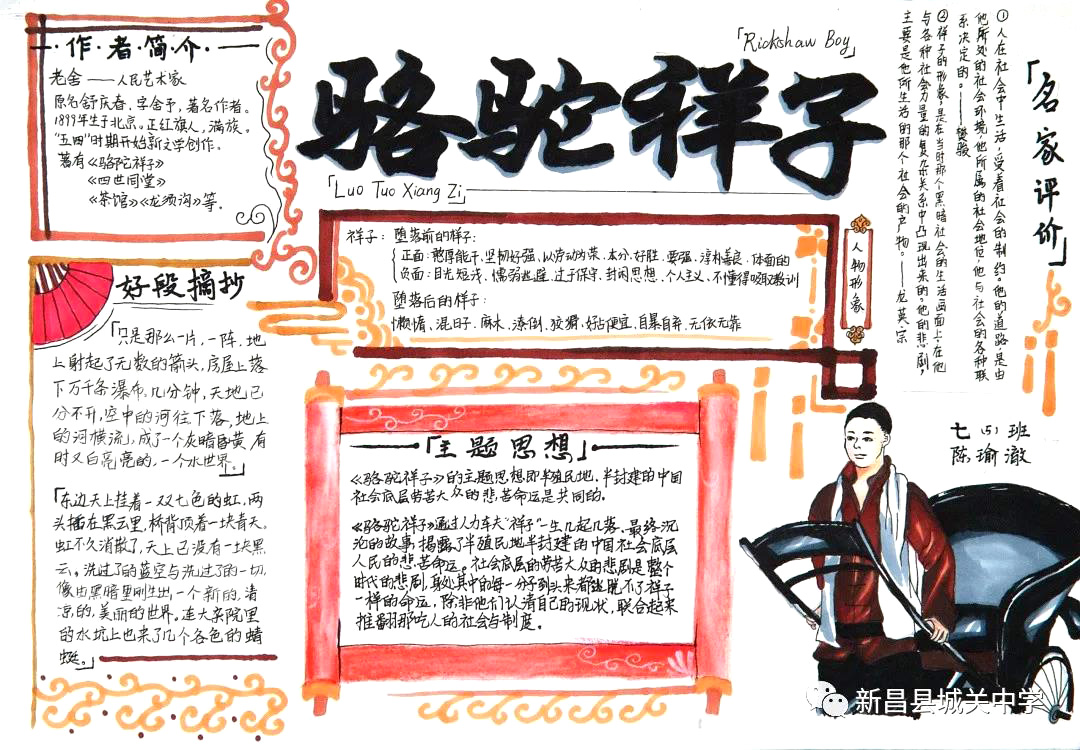 ·作者简介·
老舍——人民艺术家
原名舒庆春,字舍予,著名作者。
1899年生于北京。正红旗人,满族。
"五四"时期开始新文学创作。
著有《骆驼祥子》
《四世同堂》
《茶馆》《龙须沟》等.
「Rickshaw Boy」
骆驼祥子
「Luo Tuo Xiang Zi」
「名家评价」
①人在社会中生活,受着社会的制约。他的道路是由
他所处的社会环境,他所属的社会地位,他与社会的各种联
系决定的。——樊骏
②祥子的形象,是在当时那个黑暗社会的生活画面上,在他
与各种社会力量的复杂关系中凸现出来的。他的悲剧,
主要是他所生活的那个社会的产物。——龙英宗
人物形象
祥子:堕落前的样子:
正面:憨厚能干,坚韧好强,以劳动为荣.本分.好胜.要强.淳朴善良.体面的
负面:目光短浅、懦弱逃避.过于保守.封闭思想.个人主义、不懂得吸取教训
堕落后的样子:
懒惰、混日子.麻木、潦倒、狡猾.好占便宜.自暴自弃.无依无靠
好段摘抄
「只是那么一片,一阵,地
上射起了无数的箭头,房屋上落
下万千条瀑布。几分钟,天地已
分不开,空中的河往下落,地上
的河横流,成了一个灰暗昏黄,有
时又白亮亮的,一个水世界。」
「东边天上挂着一双七色的虹,两
头插在黑云里,桥背顶着一块青天。
虹不久消散了,天上已没有一块黑
云。洗过了的蓝空与洗过了的一切,
像由黑暗里刚生出一个新的,清
凉的,美丽的世界。连大杂院里
的水坑上也来了几个各色的蜻
蜓。」
「主题思想」
《骆驼祥子》的主题思想即半殖民地、半封建的中国
社会底层劳苦大众的悲苦命运是共同的。
《骆驼祥子》通过人力车夫"祥子"一生几起几落、最终沉
沦的故事,揭露了半殖民地半封建的中国社会底层
人民的悲苦命运。社会底层的劳苦大众的悲剧是整个
时代的悲剧,身处其中的每一分子到头来都逃脱不了祥子
一样的命运,除非他们认清自己的现状,联合起来
推翻那吃人的社会与制度。
七(5)班
陈瑜澈
新昌县城关中学